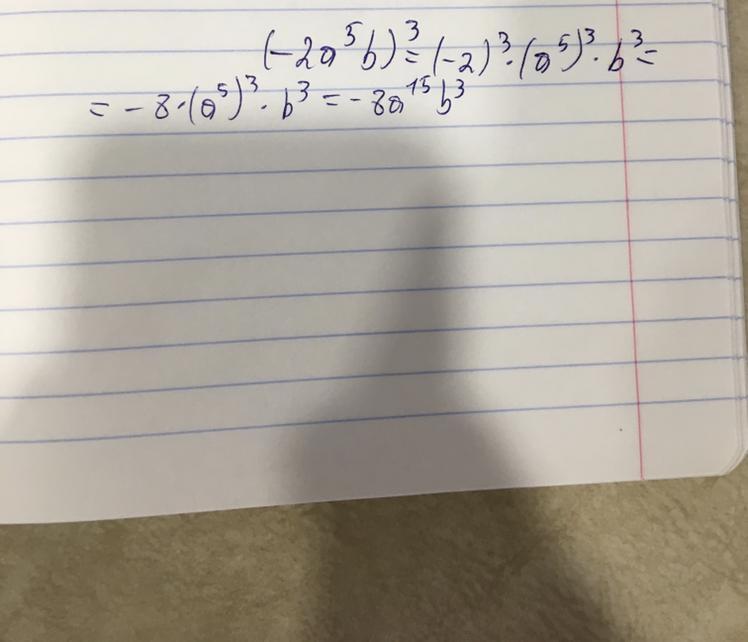 (-2a⁵b)³ = (-2)³ · (a⁵)³ · b³ =
= -8 · (a⁵)³ · b³ = -8a¹⁵b³